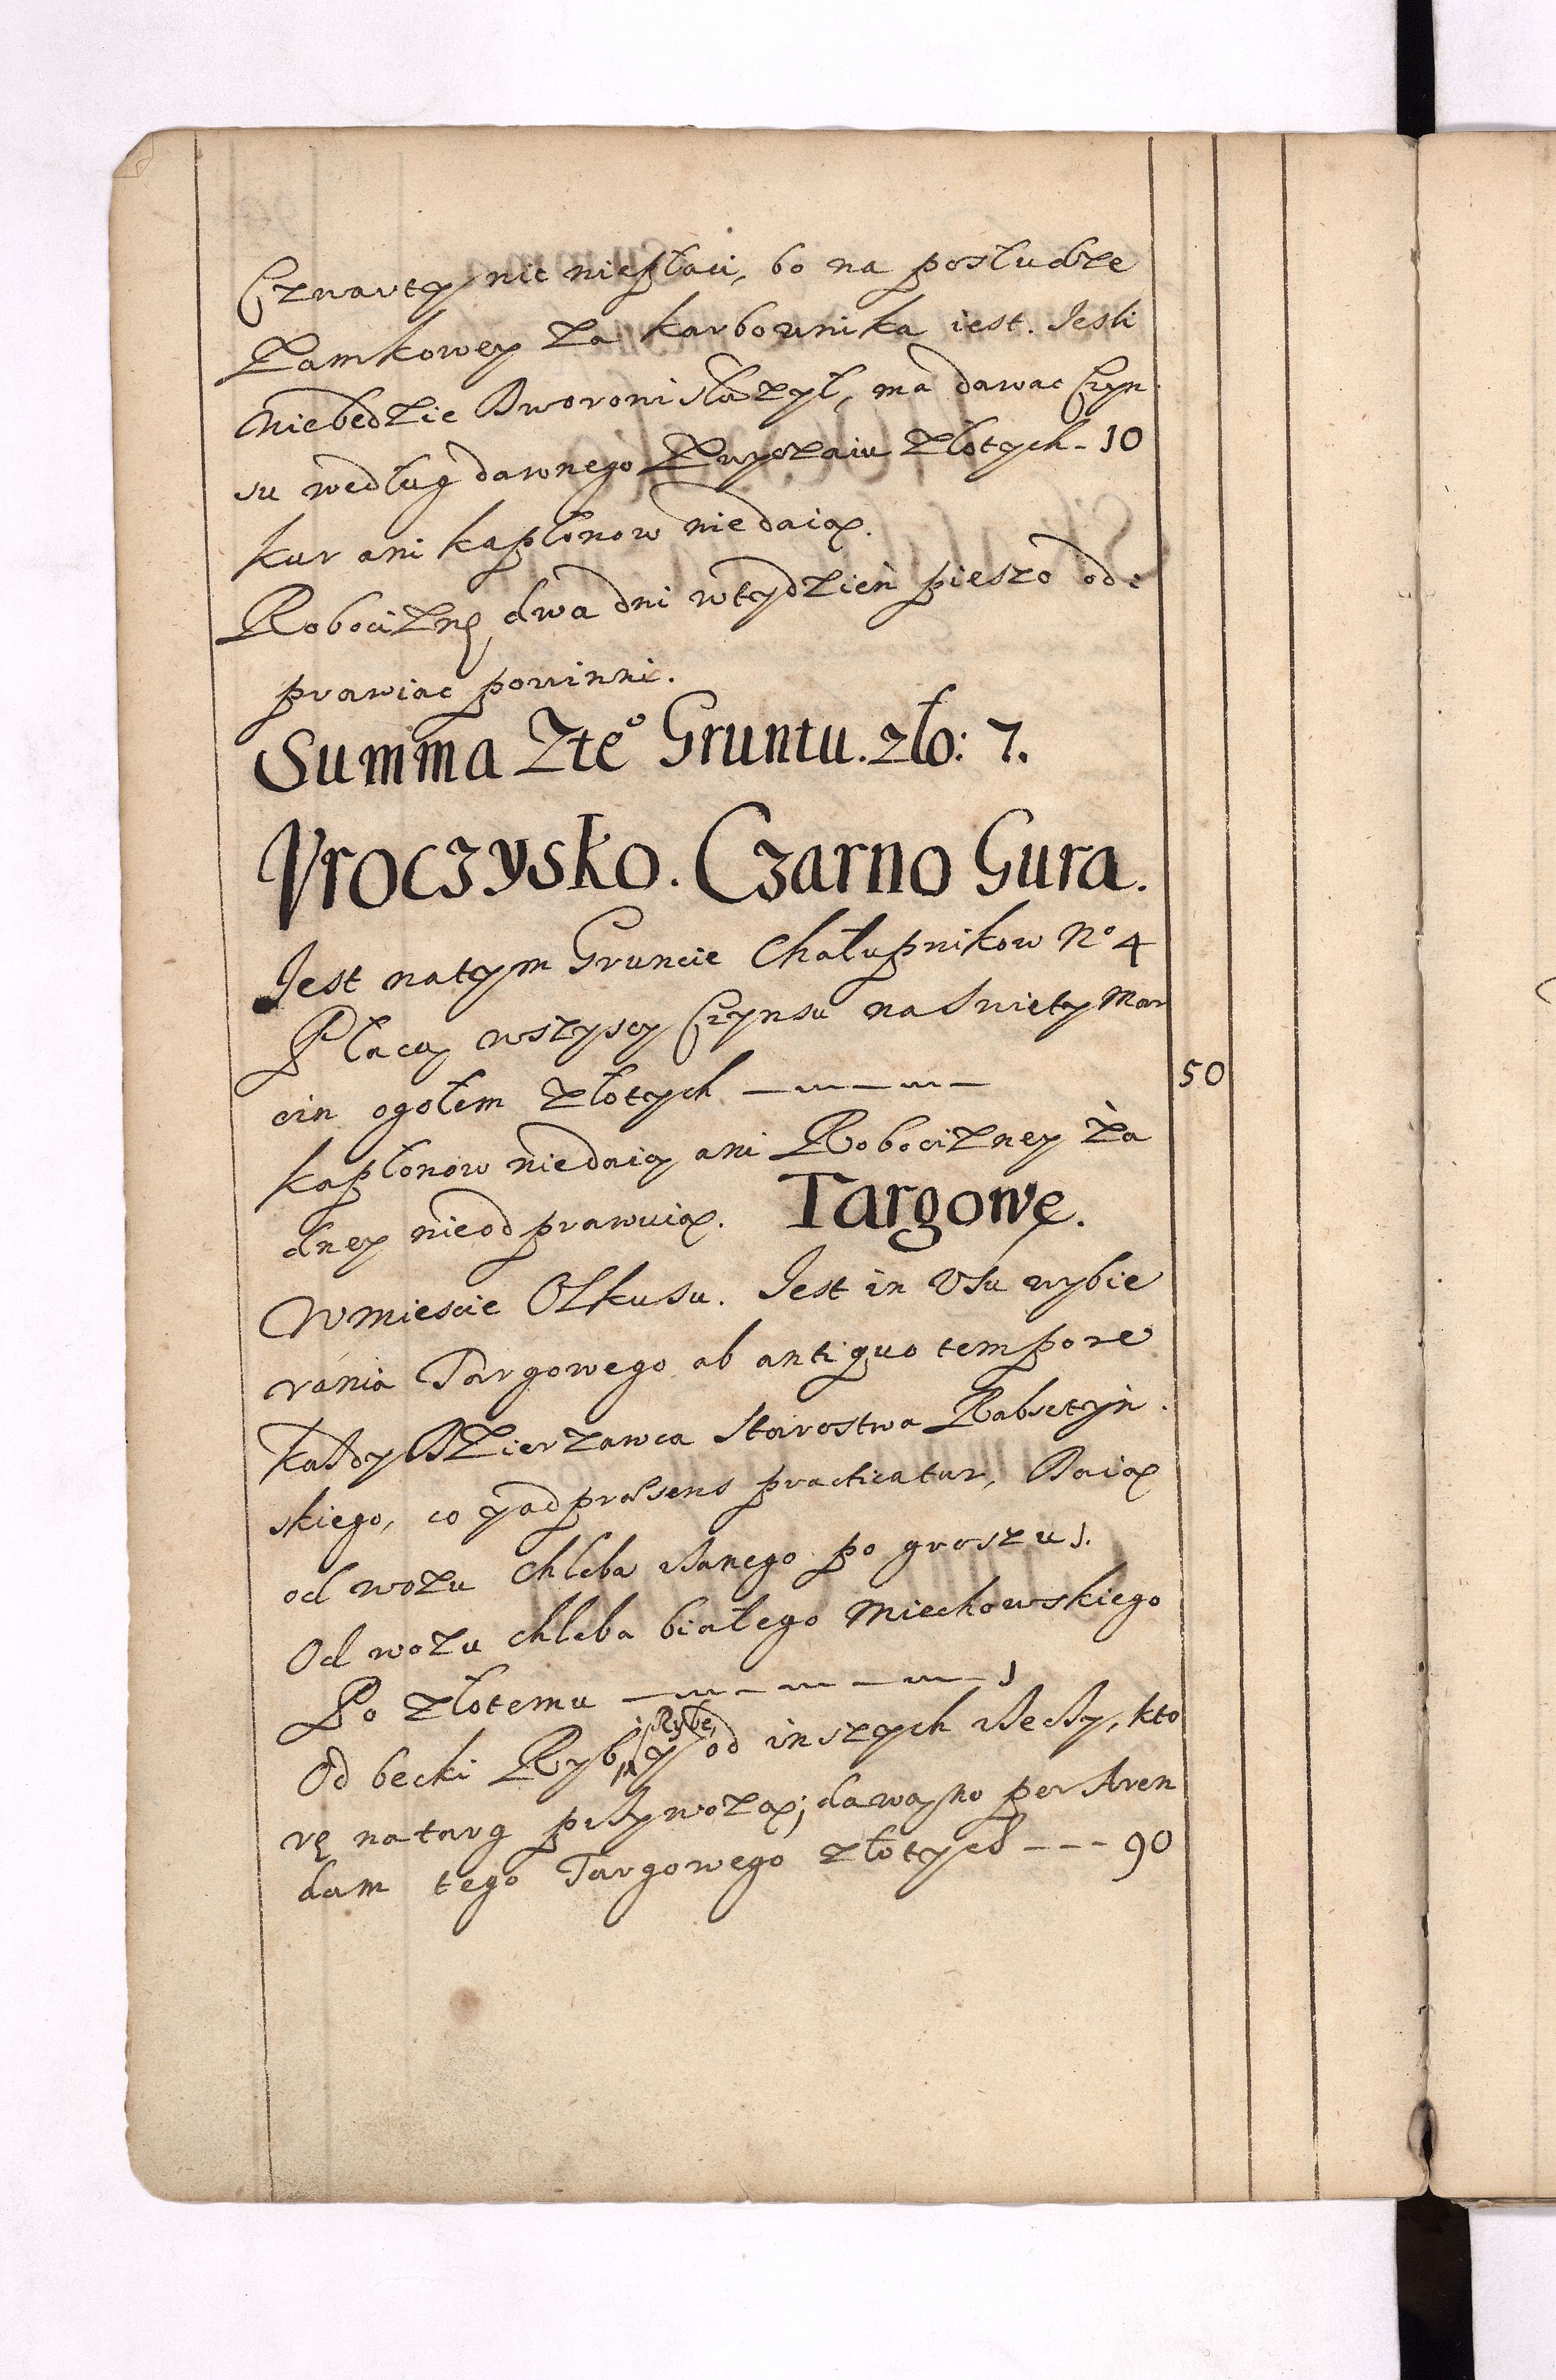 Czwarty nic niepłaci, bo na posłudze
Zamkowey za karbownika iest. Jesli
Niebędzie Dworowi słuzył, ma dawac Czyn
su według dawnego Zwyczaiu Złotych - 10
kur ani kapłonow nie daią.
Robociznę dwa dni wtydzień pieszo od:
prawiac powinni.
Summa Zte° Gruntu. zło: 7.
Vroczysko. Czarno Gura.
Jest natym Gruncie Chałupnikow No 4
Płacą wszyscy Czynsu na Swięty Mar
cin ogołem złotych — — — 50
kapłonow niedaią ani Robocizney ża
dney nieodprawuią. Targowę.
W miescie Olkusu. Jest in Usu wybie
ránia Targowego ab antiquo tempore
każdy Dzierzawca Starostwa Rabsztyń.
skiego, co y ad præsens practicatur, Daią
od wozu chleba rżanego po groszu 1.
Od wozu chleba białego Miechowskiego
Po złotemu — — — — 1
Od becki Ryb, y od inszych rżeczy, kto
rę na targ przywożą; dawano per Aren
dam tego Targowego złotych - - - 90